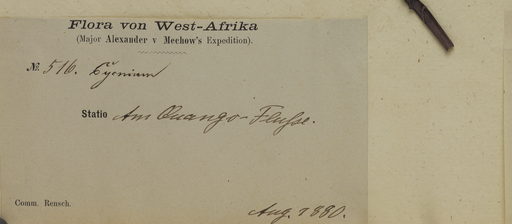 Flora von West-Afrika
(Major Alexander v Mechow's Expedition).
№ 516. Cycnium
Statio Am Quango-Flusse.
Comm. Rensch.
Aug. 1880.